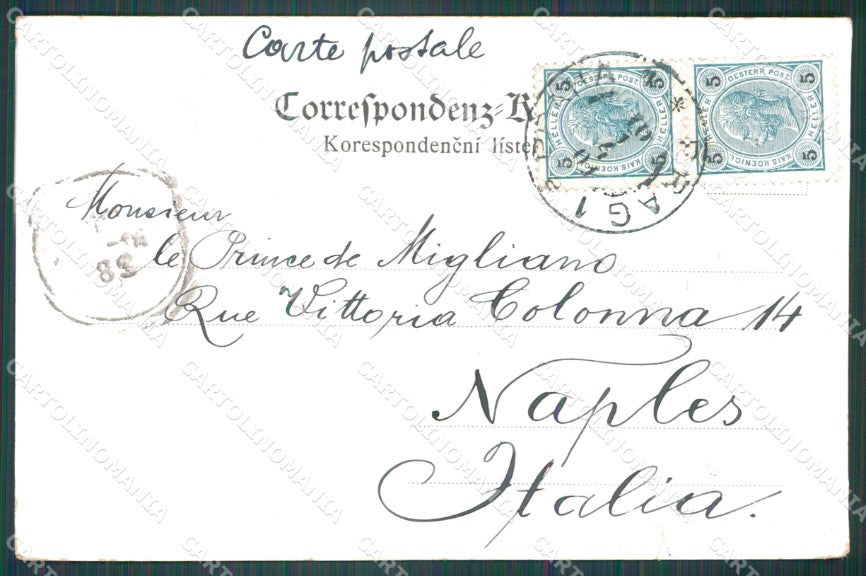 Carte postale
Correspondenz-K
Korespondenční líste
5 5 OESTERR. POST. 5 5
HELLER HELLER
5 KAIS. KOENIGL. 5
PRAG 1
PRAHA 1
Monsieur
le Prince de Migliano
Rue Vittoria Colonna 14
Naples
Italia.
58
CARTOLINOMANIA